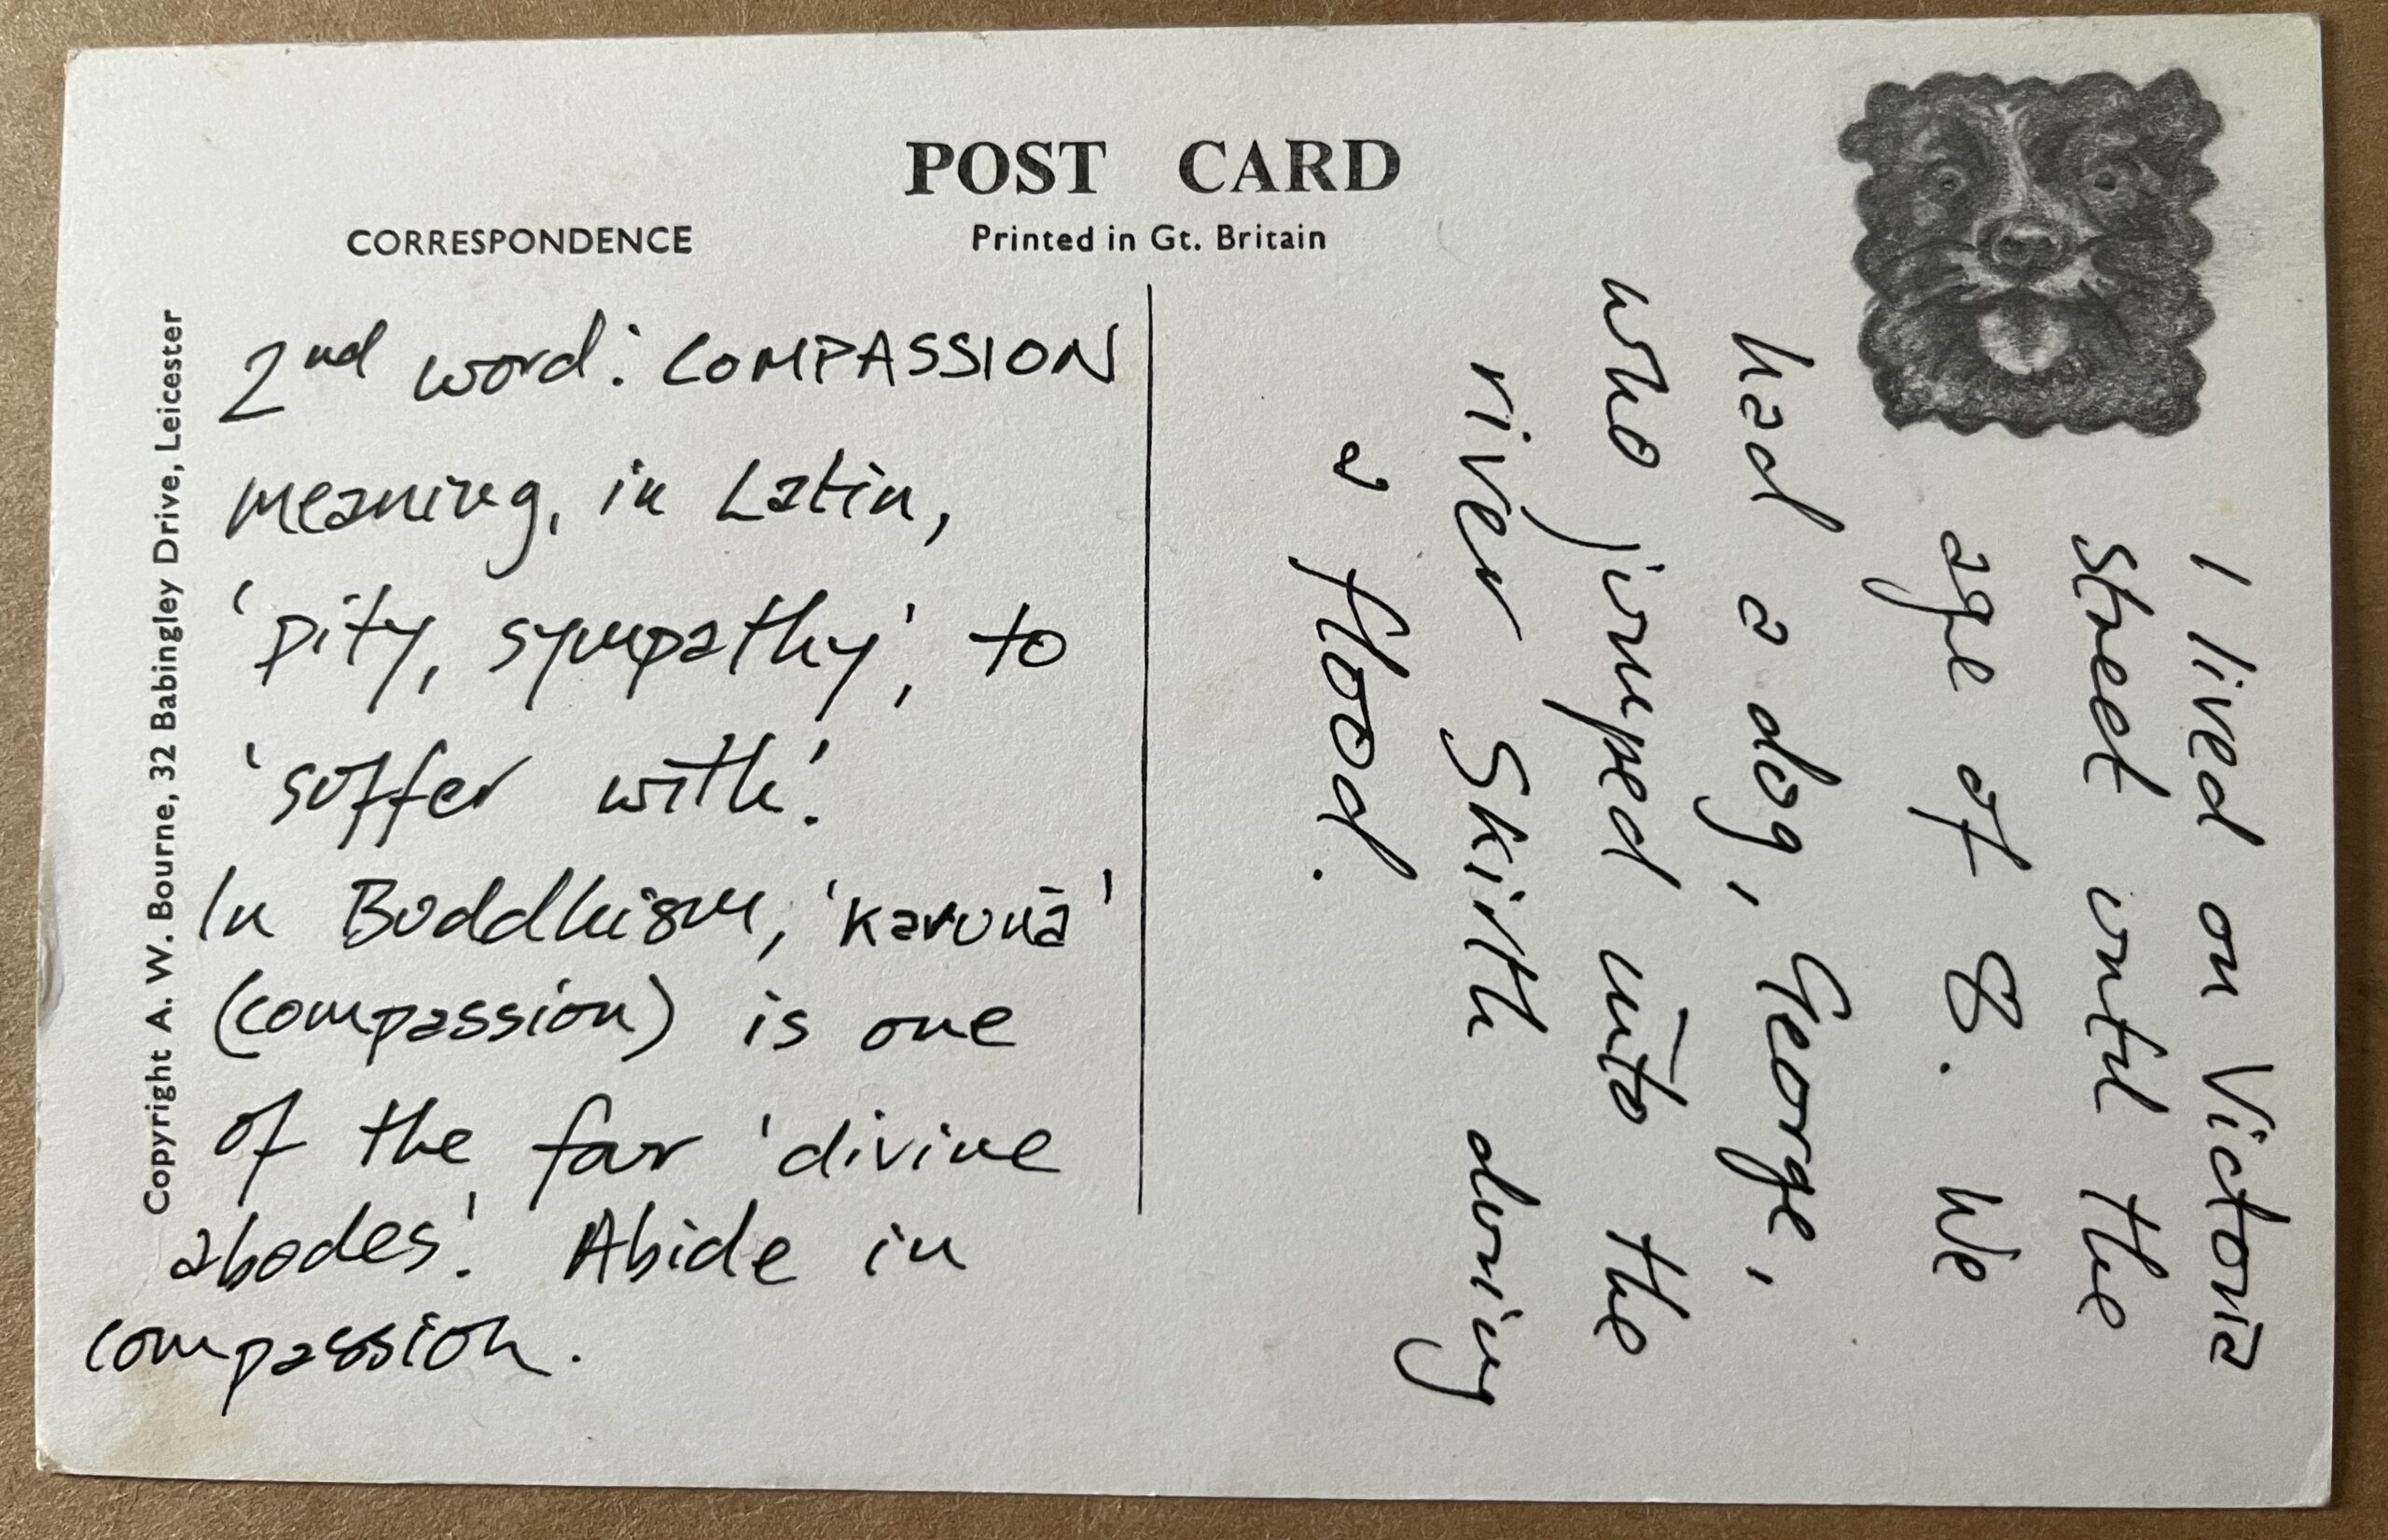 POST CARD
Printed in Gt. Britain
CORRESPONDENCE
Copyright A. W. Bourne, 32 Babingley Drive, Leicester
2nd word: COMPASSION
meaning, in Latin,
'pity, sympathy', to
'suffer with'.
In Buddhism, 'karunā'
(compassion) is one
of the four 'divine
abodes'. Abide in
compassion.
I lived on Victoria
street until the
age of 8. We
had a dog, George,
who jumped into the
river Skirth during
a flood.